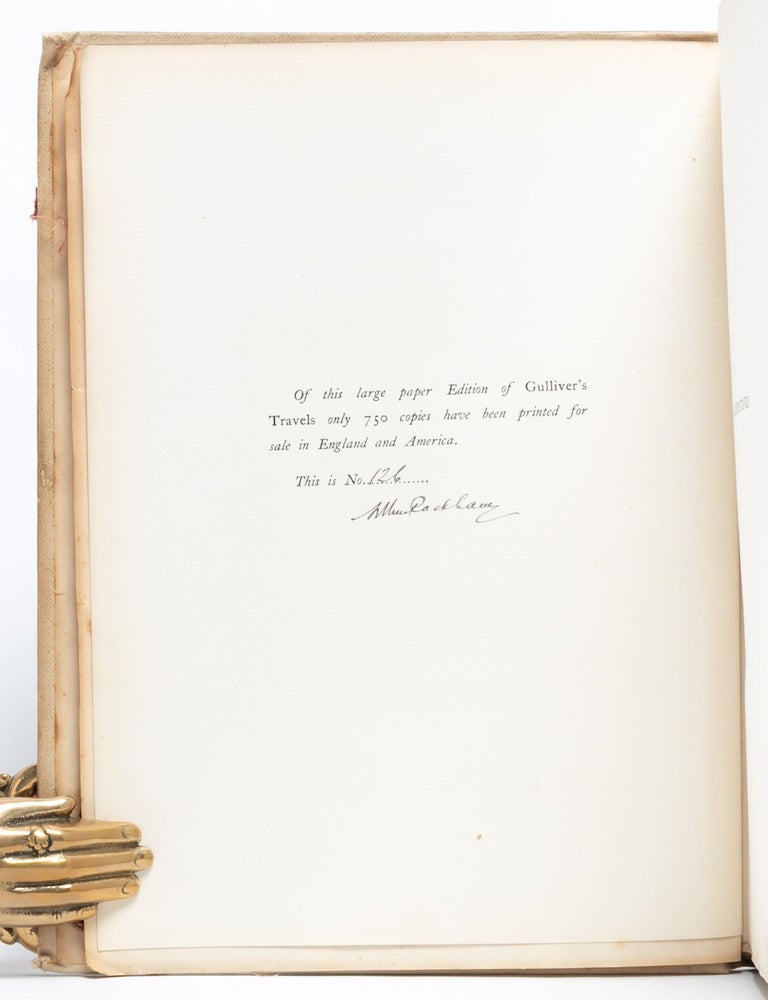 Of this large paper Edition of Gulliver's
Travels only 750 copies have been printed for
sale in England and America.
This is No..126......
Arthur Rackham